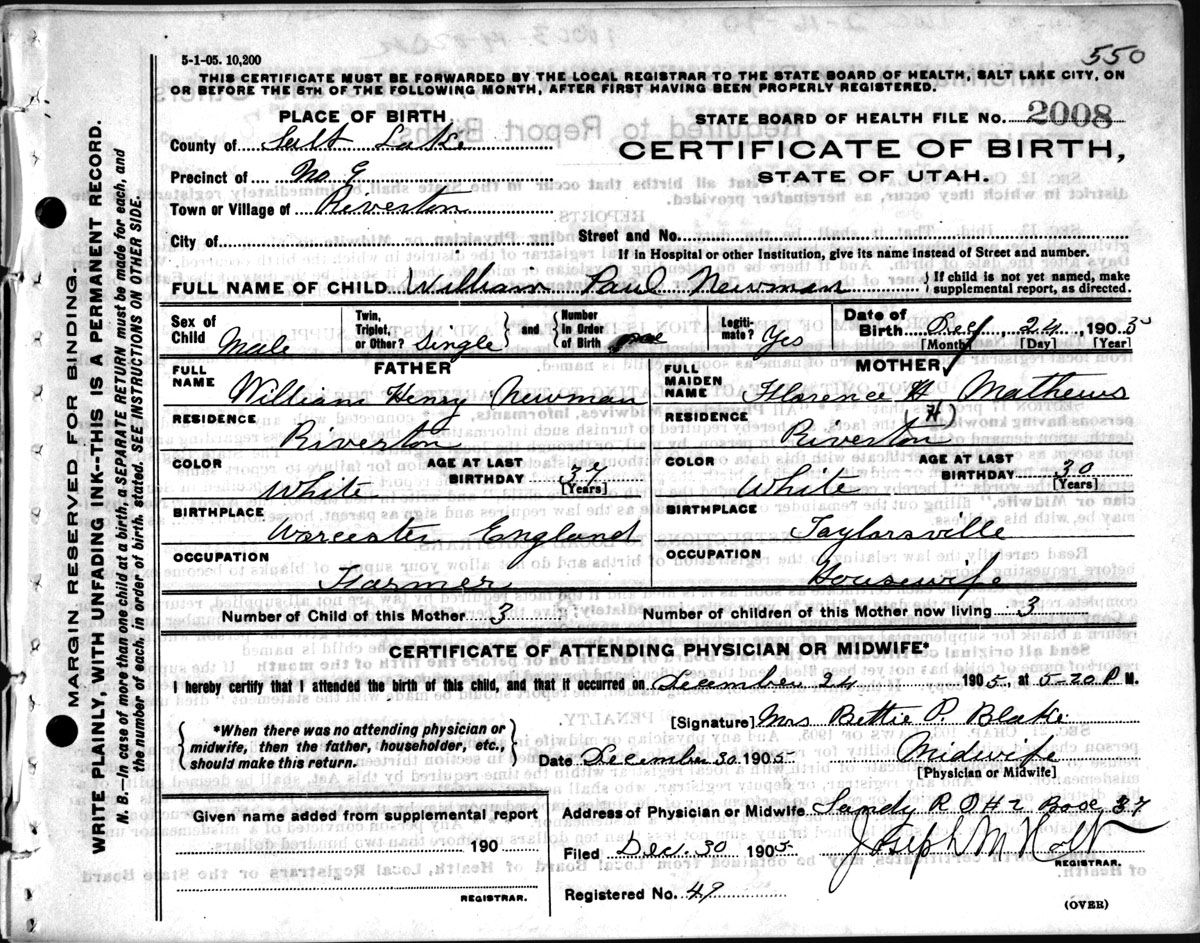 550
5-1-05. 10,200
THIS CERTIFICATE MUST BE FORWARDED BY THE LOCAL REGISTRAR TO THE STATE BOARD OF HEALTH, SALT LAKE CITY, ON
OR BEFORE THE 5TH OF THE FOLLOWING MONTH, AFTER FIRST HAVING BEEN PROPERLY REGISTERED.
PLACE OF BIRTH
STATE BOARD OF HEALTH FILE No. 2008
County of Salt Lake
CERTIFICATE OF BIRTH,
Precinct of No.
STATE OF UTAH.
Town or Village of Riverton
City of
Street and No.
If in Hospital or other Institution, give its name instead of Street and number.
FULL NAME OF CHILD William Paul Newman
{ If child is not yet named, make supplemental report, as directed.
Sex of Child Male
Twin, Triplet, or Other? Single } and { Number in Order of Birth
Legitimate? Yes
Date of Birth Dec 24, 1905
[Month] [Day] [Year]
FATHER
MOTHER
FULL NAME William Henry Newman
FULL MAIDEN NAME Florence H Mathews
(H)
RESIDENCE Riverton
RESIDENCE Riverton
COLOR White
AGE AT LAST BIRTHDAY 37 [Years]
COLOR White
AGE AT LAST BIRTHDAY 30 [Years]
BIRTHPLACE Worcester England
BIRTHPLACE Taylorsville
OCCUPATION Farmer
OCCUPATION Housewife
Number of Child of this Mother 3
Number of children of this Mother now living 3
CERTIFICATE OF ATTENDING PHYSICIAN OR MIDWIFE*
I hereby certify that I attended the birth of this child, and that it occurred on December 24 1905, at 5-20 P M.
{ *When there was no attending physician or midwife, then the father, householder, etc., should make this return. }
[Signature] Mrs Bettie P. Blake
Date December 30 1905
Midwife
[Physician or Midwife]
Given name added from supplemental report
190
REGISTRAR.
Address of Physician or Midwife Sandy R 2 Box 37
Filed Dec. 30 1905
Joseph M Holt
REGISTRAR.
Registered No. 49
(OVER)
MARGIN RESERVED FOR BINDING.
WRITE PLAINLY, WITH UNFADING INK--THIS IS A PERMANENT RECORD.
N. B.—In case of more than one child at a birth, a SEPARATE RETURN must be made for each, and
the number of each, in order of birth, stated. SEE INSTRUCTIONS ON OTHER SIDE.